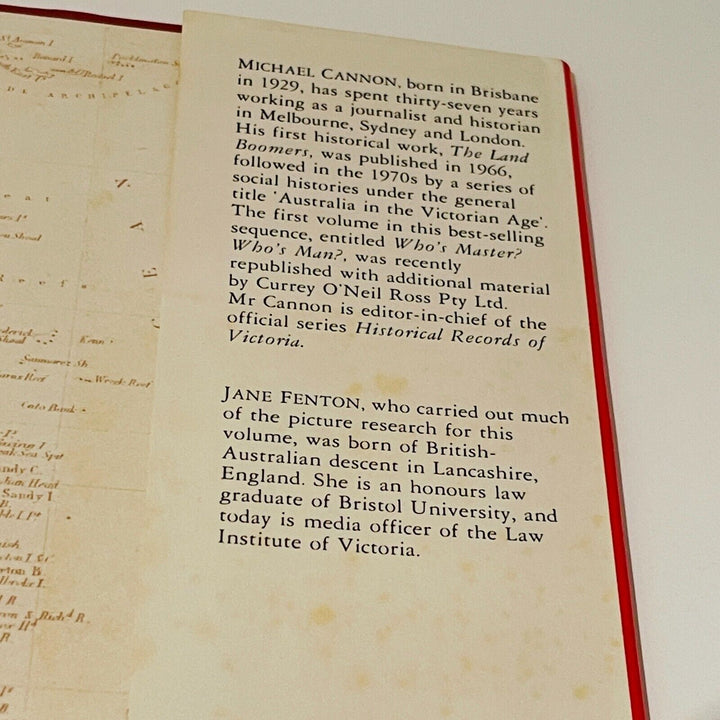 MICHAEL CANNON, born in Brisbane
in 1929, has spent thirty-seven years
working as a journalist and historian
in Melbourne, Sydney and London.
His first historical work, The Land
Boomers, was published in 1966,
followed in the 1970s by a series of
social histories under the general
title 'Australia in the Victorian Age'.
The first volume in this best-selling
sequence, entitled Who's Master?
Who's Man?, was recently
republished with additional material
by Currey O'Neil Ross Pty Ltd.
Mr Cannon is editor-in-chief of the
official series Historical Records of
Victoria.
JANE FENTON, who carried out much
of the picture research for this
volume, was born of British-
Australian descent in Lancashire,
England. She is an honours law
graduate of Bristol University, and
today is media officer of the Law
Institute of Victoria.
DE ARCHIPELAG
Reefs
Kenn
Saumarez Sh
Wreck Reef
Cato Bank
Sandy C.
Sandy I